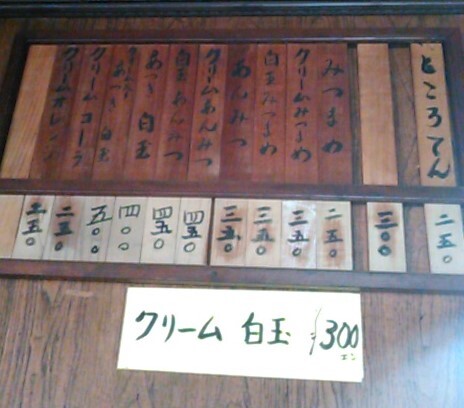 ところてん
みつまめ
クリームみつまめ
白玉みつまめ
あんみつ
クリームあんみつ
白玉あんみつ
あづき 白玉
クリームあづき 白玉
クリームコーラ
クリームオレンジ
二五〇
三〇〇
二五〇
三五〇
三五〇
三五〇
四五〇
四五〇
四〇〇
五〇〇
二五〇
二五〇
クリーム 白玉 ¥300エン